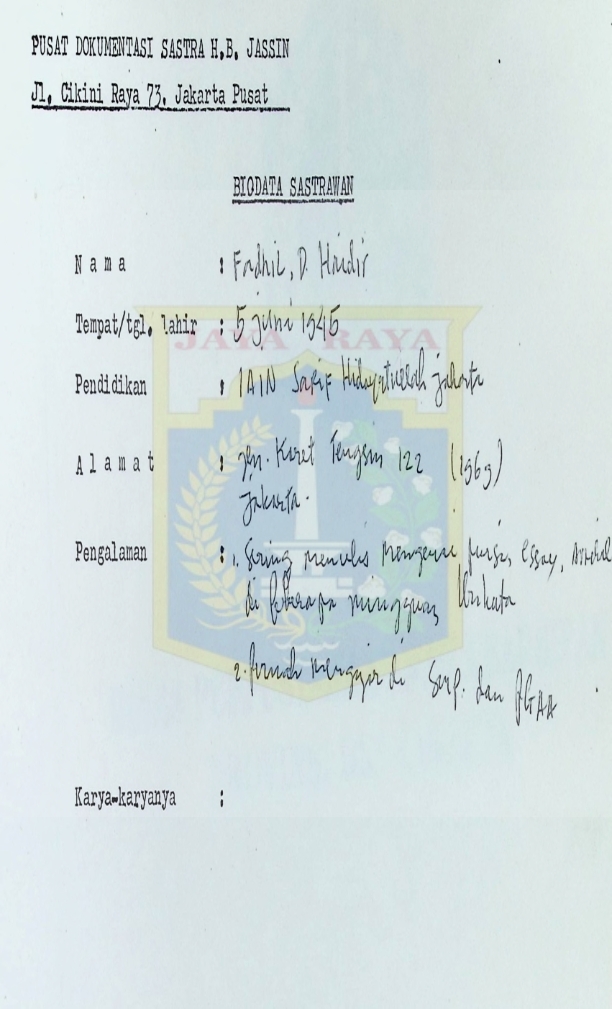 PUSAT DOKUMENTASI SASTRA H.B. JASSIN
Jl. Cikini Raya 73. Jakarta Pusat
BIODATA SASTRAWAN
N a m a : Fadhil, D. Haidir
JAYA RAYA
Tempat/tgl. lahir : 5 juni 1945
Pendidikan : IAIN Sarif Hidayatullah jakarta
A l a m a t : Jln. Karet Tengsin 122 (1969)
jakarta.
Pengalaman : 1. Sering menulis mengenai puisi, essay,
di beberapa mingguan Ibukata
2. pernah mengajar di SMP. dan PGAA
Karya-karyanya :